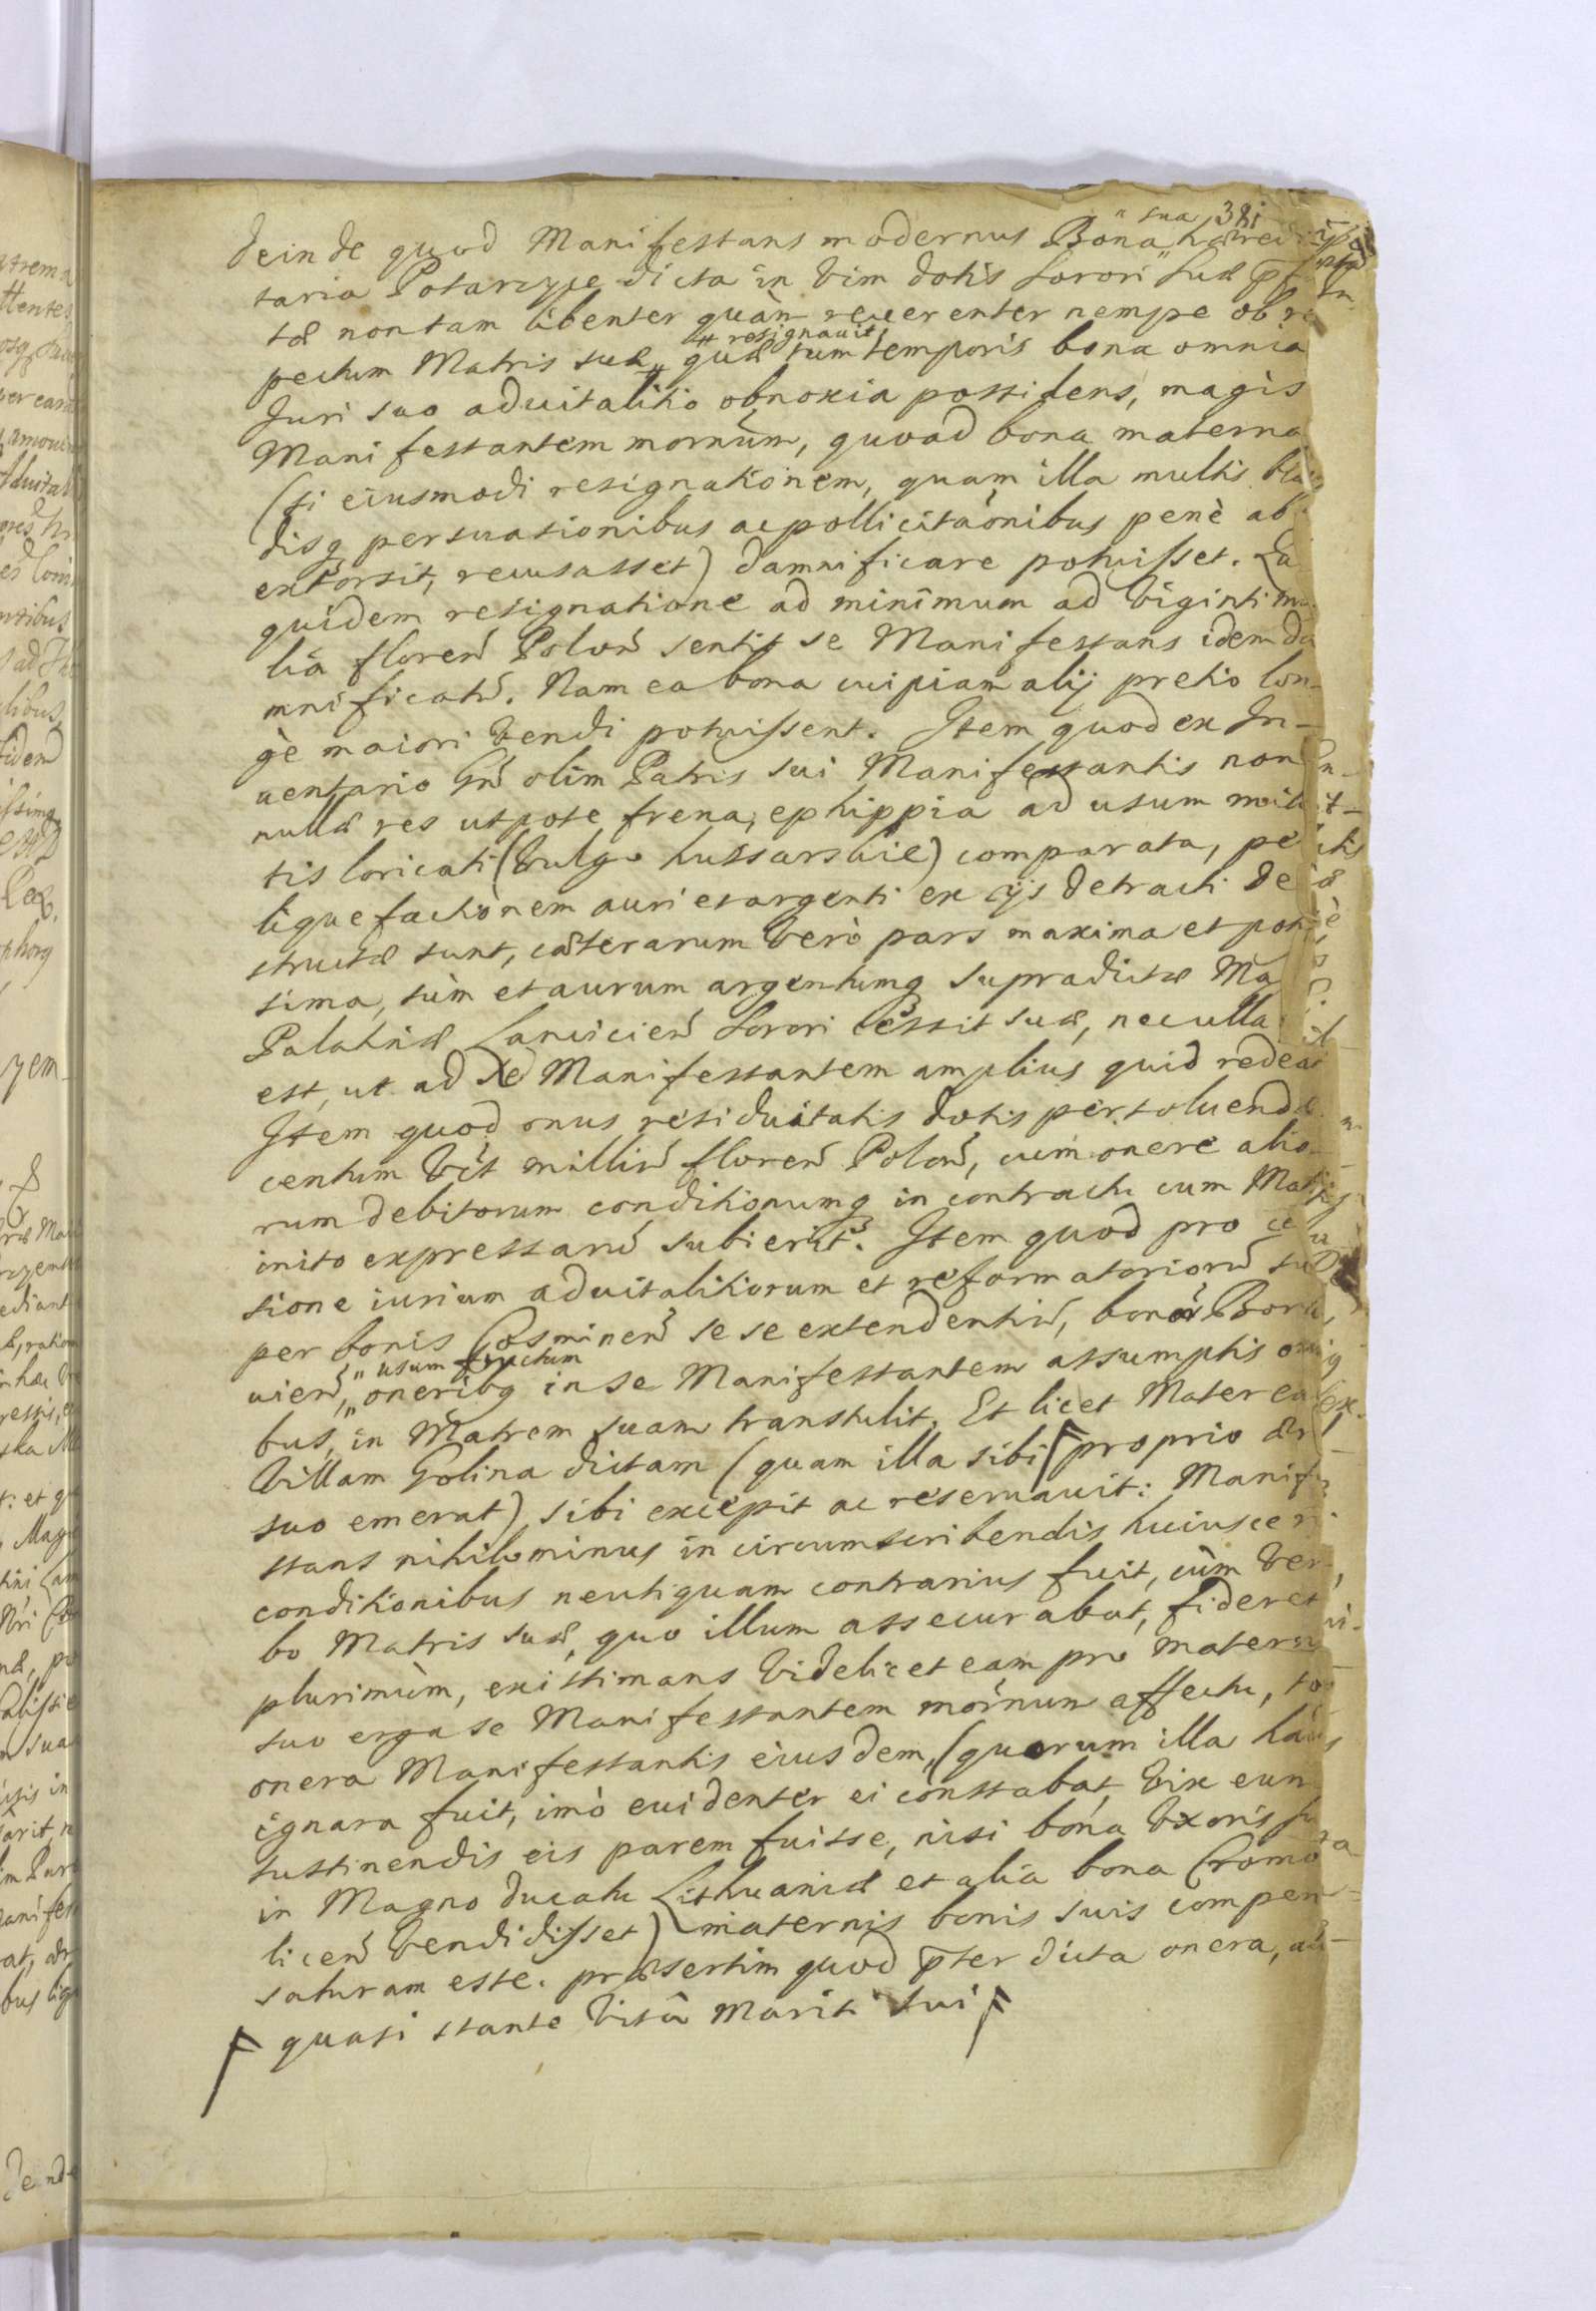 sua 381
deinde quod Manifestans modernus Bona " hæredi
taria Potarzyce dicta in vim dotis Sorori suæ
tæ non tam libenter quàm reuerenter nempe ob re
" resignauit
pectum Matris suæ " quæ tum temporis bona omnia
Juri suo aduitalitio obnoxia possidens, magis
Manifestantem mornum, quoad bona materna
(si eiusmodi resignationem, quam illa multis blan
disq persuasionibus ac pollicitaonibus penè ab
extorsit, recusasset) damnificare potuisset. Ea
quidem resignatione ad minimum ad viginti mi
lia floren Polon sentit se Manifestans idem da
mnificatu. Nam ea bona cuipiam alij pretio lon-
gè maiori vendi potuissent. Item quod ex In-
uentario Gn olim Patris sui Manifestantis non
nullæ res utpote frena, ephippia ad usum mili
tis loricati (vulgo hussarskie) comparata, pe
liquefactionem auri et argenti ex ijs detracti de
structæ sunt, cæterarum verò pars maxima et poti
sima, tùm et aurum argentumq supradictæ Ma
Palatinæ Lanicien Sorori cessit suæ, nec ulla
est, ut ad Manifestantem amplius quid redeat
Item quod onus residuitatis dotis persoluendæ
centum vigt milliu floren Polon, cum onere alio-
rum debitorum conditionumq in contractu cum Matre
inito expressaru subierit. Item quod pro ces
sione iurium aduitalitiorum et reformatorioru su
per bonis Cosminen se se extendentiu, bonor Bore
" usum fructum
uien, " oneribq in se Manifestantem assumptis omni
bus, in Matrem suam transtulit. Et licet Mater ea
villam Golina dictam (quam illa sibi F proprio ær
suo emerat) sibi excepit ac reseruauit: Manife
stans nihilominus in circumscribendis huiusce
conditionibus neutiquam contrarius fuit, cùm ver-
bo Matris suæ, quo illum assecurabat, fideret
plurimùm, existimans videlicet eam pro materno
suo erga se Manifestantem mornum affectu, tot
onera Manifestantis eiusdem, (quorum illa haud
ignara fuit, imò euidenter ei constabat, vix eum
sustinendis eis parem fuisse, nisi bona Uxoris su
in Magno Ducatu Lithuaniæ et alia bona Cromo
licen vendidisset) maternis bonis suis compen-
saturam esse. præsertim quod pter dicta onera,
F quasi stante vitâ Mariti sui F